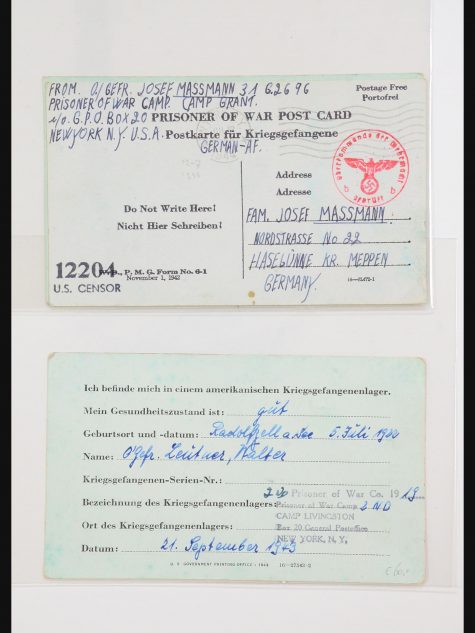 FROM. O/GEFR. JOSEF MASSMANN 31 G2696
PRISONER OF WAR CAMP. CAMP GRANT.
c/o. G.P.O. BOX 20 PRISONER OF WAR POST CARD
NEW YORK N.Y. U.S.A. Postkarte für Kriegsgefangene
GERMAN-AF.
Postage Free
Portofrei
Oberkommando der Wehrmacht
b b
Geprüft
Address
Adresse
Do Not Write Here!
Nicht Hier Schreiben!
FAM. JOSEF MASSMANN.
NORDSTRASSE No 22
HASELÜNNE KR. MEPPEN
GERMANY.
12204
U.S. CENSOR
P. M. G. Form No. 6-1
November 1, 1943
Ich befinde mich in einem amerikanischen Kriegsgefangenenlager.
Mein Gesundheitszustand ist: gut
Geburtsort und -datum: Radolfzell a. See 5. Juli
Name: O'Gefr. Leutner, Walter
Kriegsgefangenen-Serien-Nr.:
Prisoner of War Co. 19
Bezeichnung des Kriegsgefangenenlagers: Prisoner of War Camp 2ND
CAMP LIVINGSTON
Ort des Kriegsgefangenenlagers: Box 20 General Postoffice
NEW YORK, N.Y.
Datum: 21. September 1943
U. S. GOVERNMENT PRINTING OFFICE : 1943